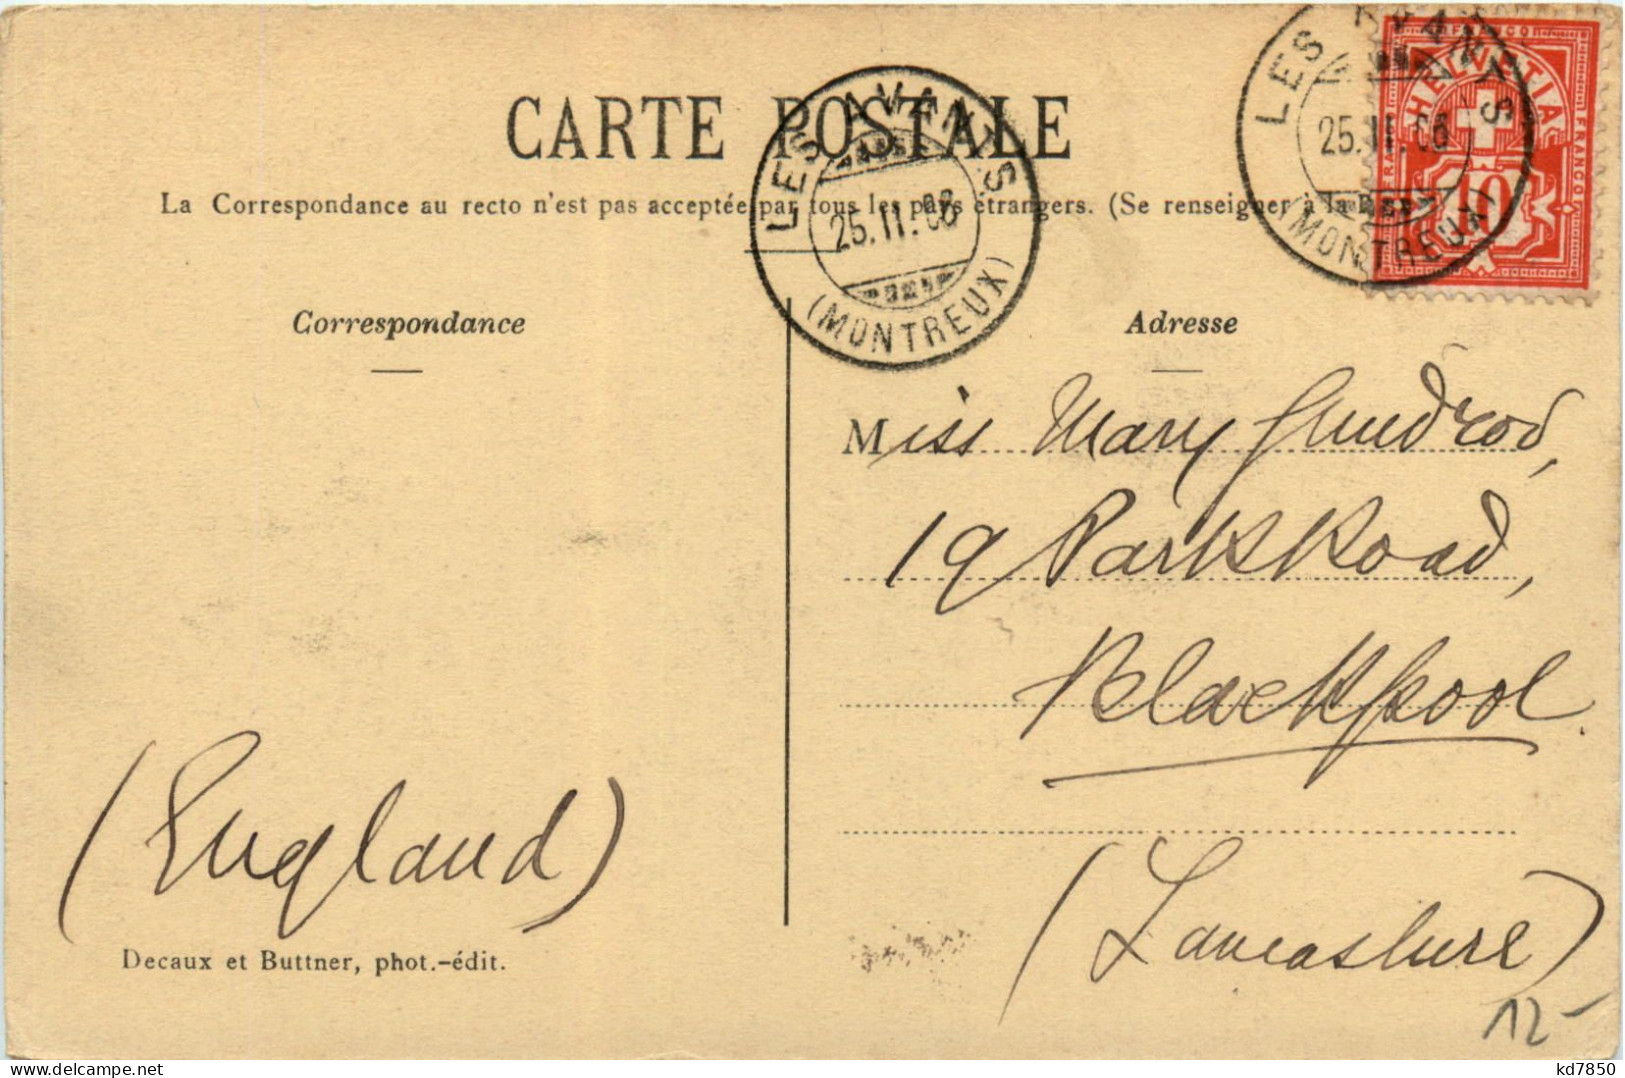 CARTE POSTALE
La Correspondance au recto n'est pas acceptée par tous les pays étrangers. (Se renseigner à la
LES AVANTS
25.II.06
(MONTREUX)
LES AVANTS
25.II.06
(MONTREUX)
FRANCO
HELVETIA
FRANCO
10
Correspondance
Adresse
Miss Mary Gundrod,
19 Parks Road,
Blackpool.
(England)
(Lancashire)
Decaux et Buttner, phot.-édit.
12-
kd7850